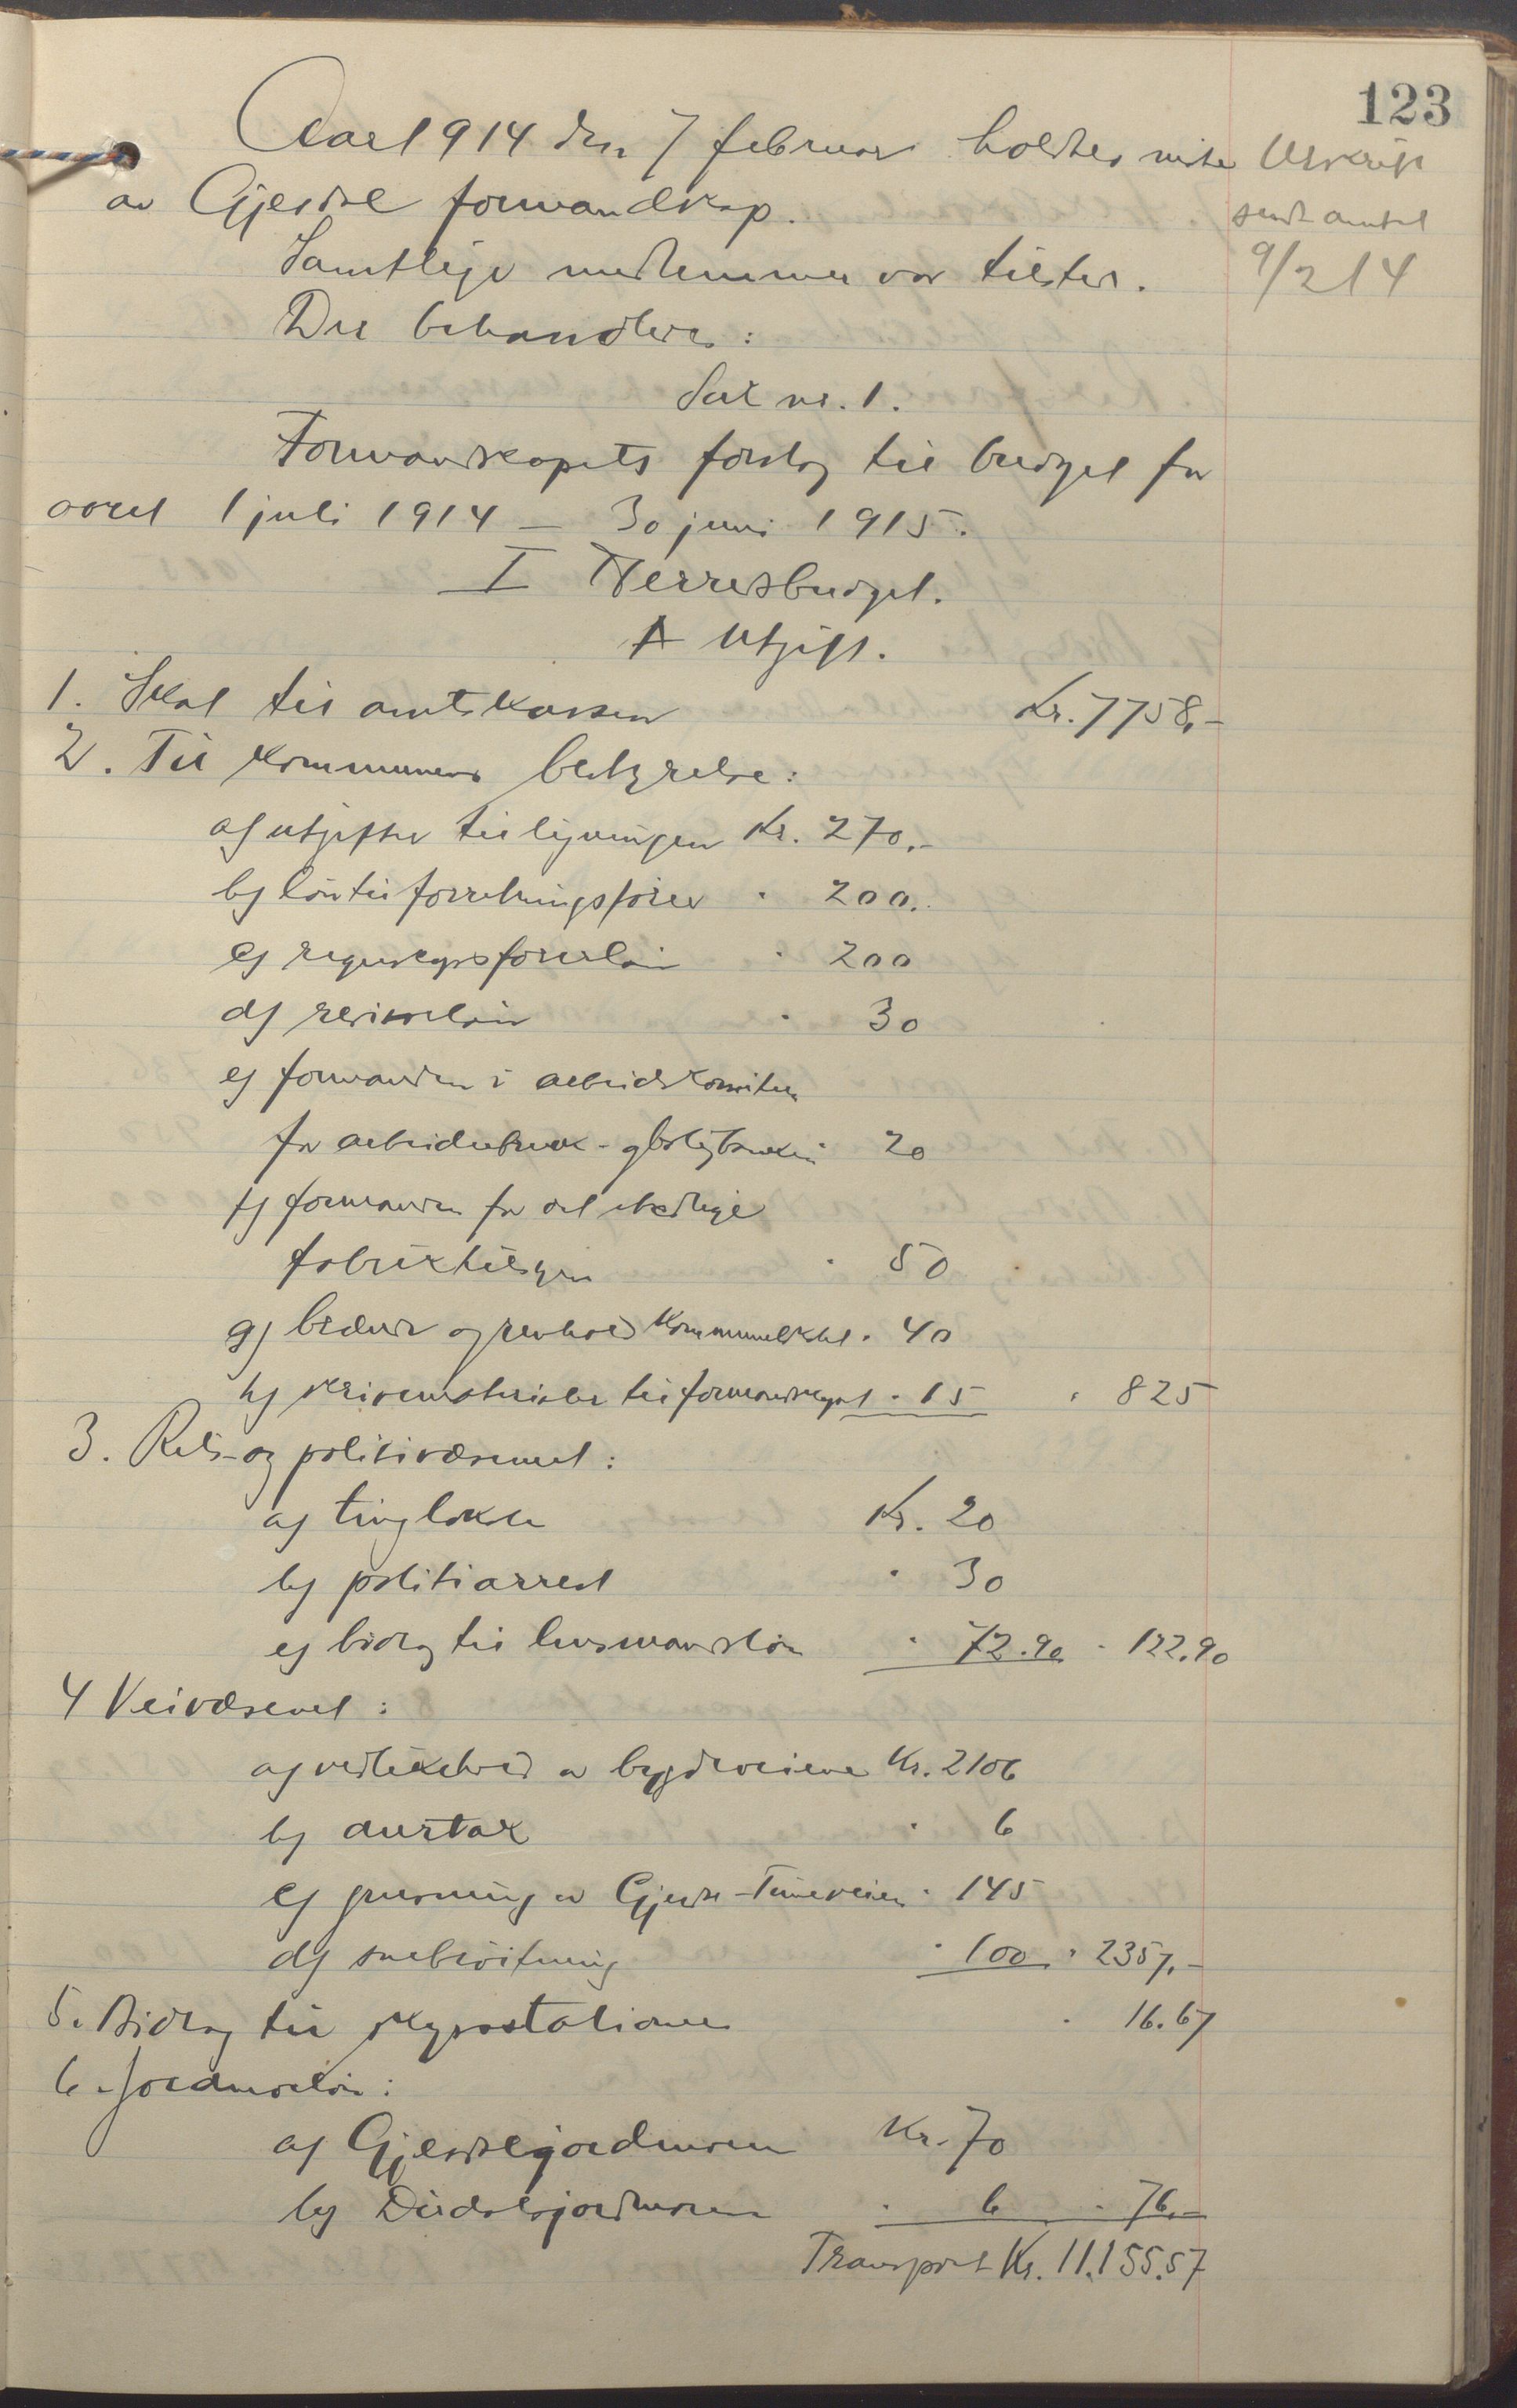 123
Aar 1914 den 7 februar holdtes møte
av Gjesdal formandskap.
Utskrift
sendt amtet
9/2 14
Samtlige medlemmer var tilstede.
Der behandledes:
Sak nr. 1.
Formandskapets forslag til budget for
aaret 1 juli 1914 – 30 juni 1915.
I Herredsbudget.
A Utgift.
1. Skat til amtskassen Kr. 7758,-
2. Til kommunens bestyrelse:
a) utgifter til ligningen Kr. 270.-
b) løn til forretningsfører " 200.
c) regnskapsførerløn " 200
d) revisorløn " 30
e) formanden i arbeidskomiteen
for arbeiderbruk- og boligbanken " 20
f) formanden for det stedlige
fabriktilsyn " 50
g) brænde og renhold kommunelokal " 40
h) skrivematerialer til formandskapet " 15 " 825
3. Rets- og politivæsenet:
a) tinglokale Kr. 20
b) politiarrest " 30
c) bidrag til lensmandsløn " 72.90 " 122.90
4 Veivæsenet:
a) vedlikehold av bygdeveiene Kr. 2106
b) aurtak " 6
c) grusning av Gjesdal-Timeveien " 145
d) snebrøitning " 100 " 2357,-
5. Bidrag til skydsstationer " 16.67
6. Jordmorløn:
a) Gjesdaljordmoren Kr. 70
b) Dirdalsjordmoren " 6 " 76,-
Transport Kr. 11.155.57